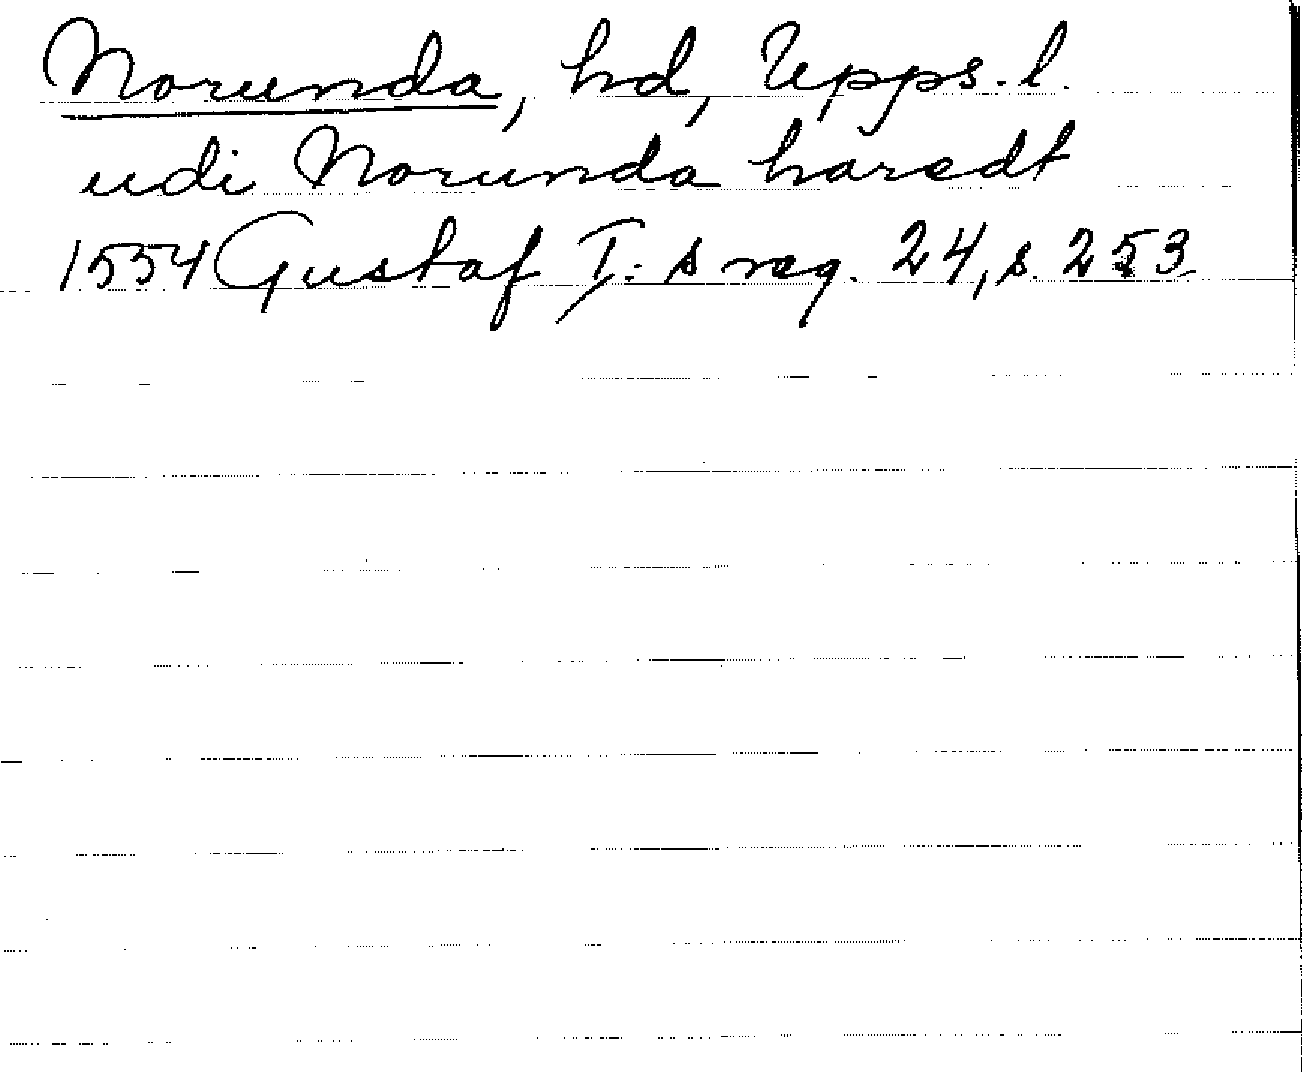 Norunda, hd, Upps. l.
udi Norunda haredt
1554 Gustaf I:s reg. 24, s. 253